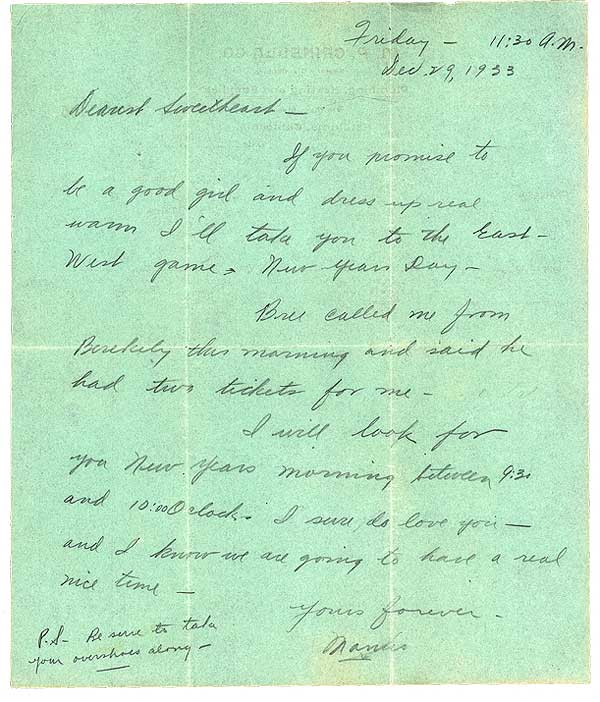 Friday - 11:30 A.M.
Dec. 29, 1933
Dearest Sweetheart -
If you promise to
be a good girl and dress up real
warm I'll take you to the East-
West game, New Years Day -
Bree called me from
Berekely this morning and said he
had two tickets for me -
I will look for
you New Years morning between 9:30
and 10:00 O'clock. I sure do love you -
and I know we are going to have a real
nice time -
Yours forever -
P.S. - Be sure to take
your overshoes along -